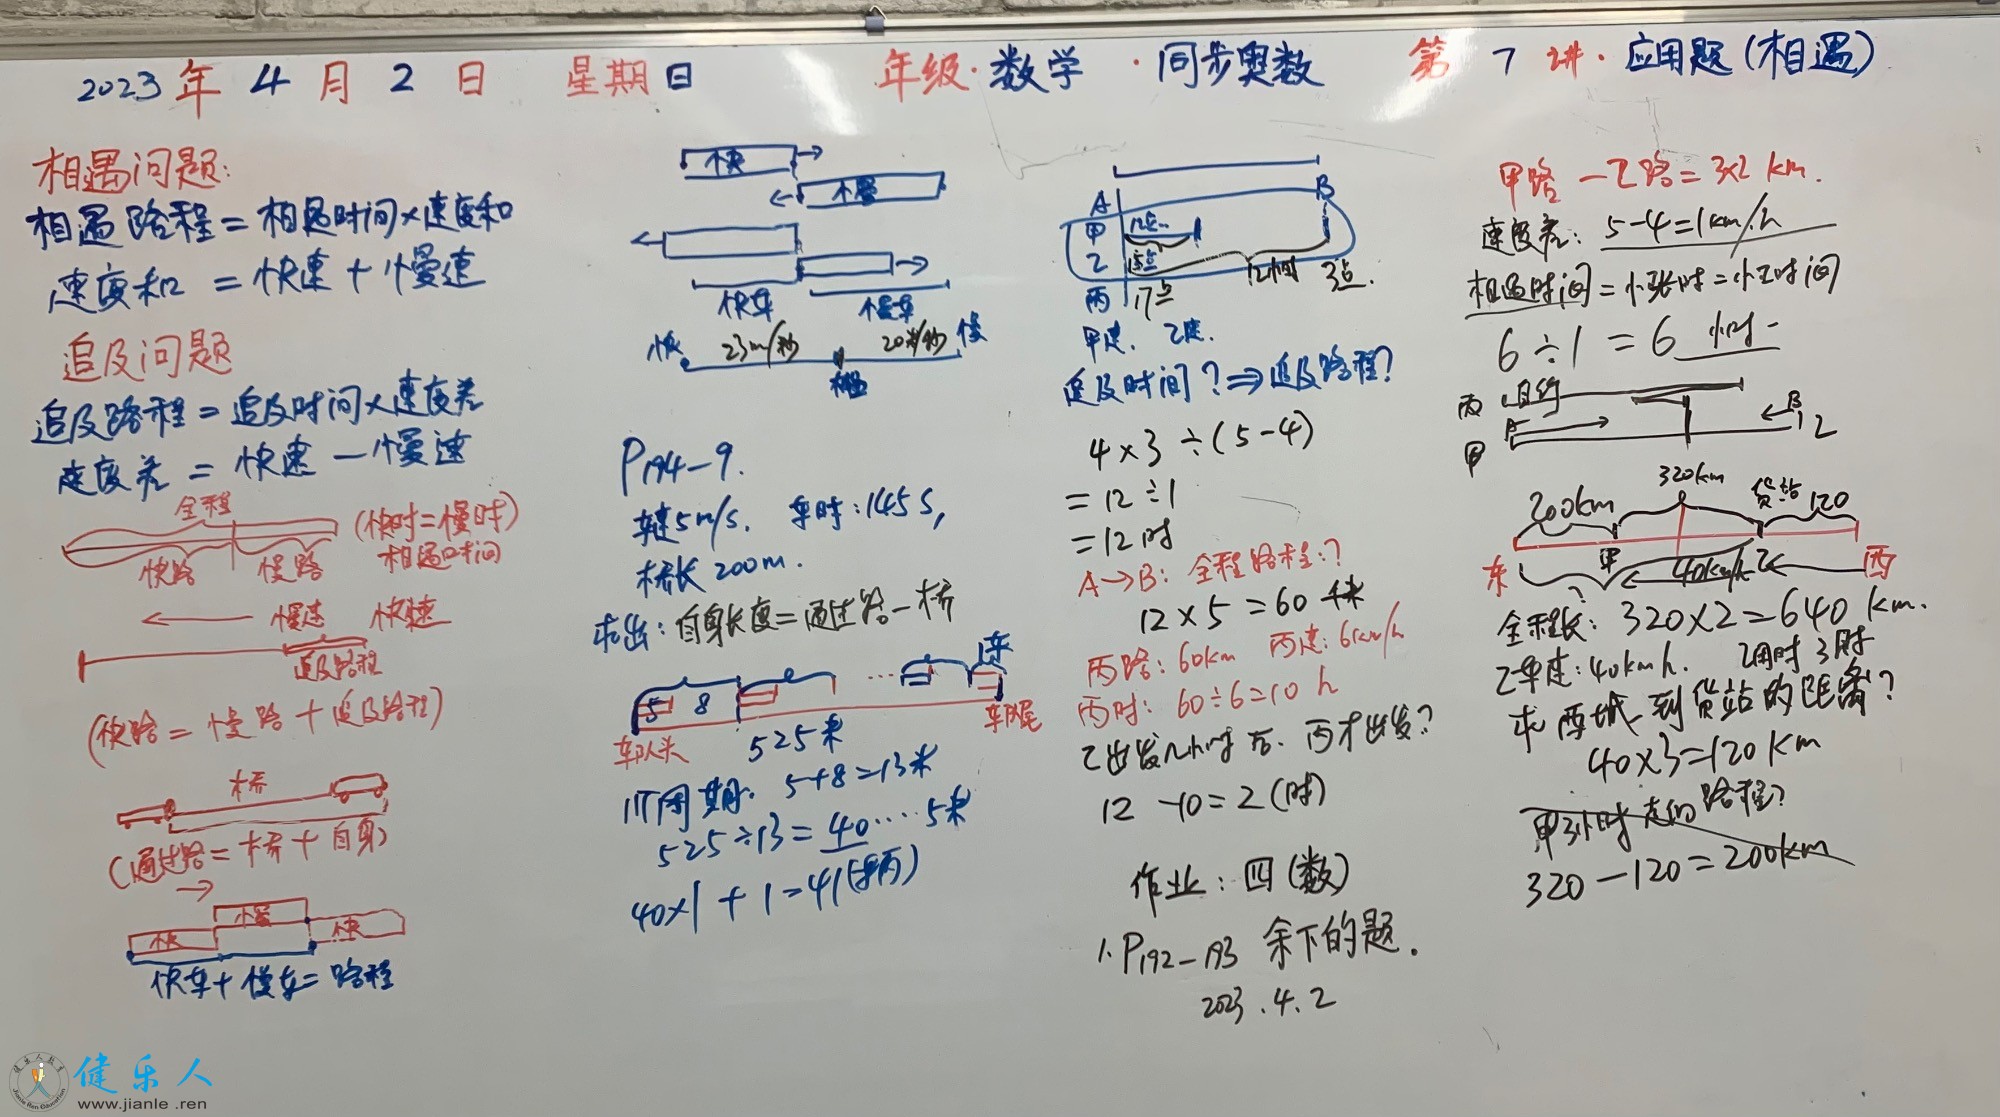 2023年4月2日 星期日 年级·数学·同步奥数 第7讲·应用题(相遇)
相遇问题:
相遇路程=相遇时间×速度和
速度和=快速+慢速
追及问题
追及路程=追及时间×速度差
速度差=快速-慢速
全程
(快时=慢时)
相遇时间
快路 慢路
慢速 快速
追及路程
(快路=慢路+追及路程)
桥
(通过路=桥+自身)
慢
快 快
快车+慢车=路程
快
慢
快车 慢车
快 23m/秒 20米/秒 慢
P194-9.
车速5m/s. 车时:145s,
桥长200m.
求出:自身长度=通过路-桥
5 8 ...
车队头 525米 车队尾
1个周期: 5+8=13米
525÷13=40····5米
40×1+1=41(辆)
A B
甲
乙 12小时 3点.
丙 17点
甲速. 乙速.
追及时间?⇒追及路程?
4×3÷(5-4)
=12÷1
=12时
A→B: 全程路程:?
12×5=60千米
丙路:60km 丙速:6km/h
丙时: 60÷6=10h
乙出发几小时后.丙才出发?
12-10=2(时)
作业:四(数)
1.P192-193 余下的题.
2023.4.2
甲路-乙路=3×2km.
速度差: 5-4=1km/h
相遇时间=小张时=小王时间
6÷1=6小时
丙
A B
甲 乙
200km 320km 货站 120
东 甲 40km/h 乙 西
全程长: 320×2=640km.
乙车速:40kmh. 乙用时3时
求西城到货站的距离?
40×3=120km
甲3小时走的路程?
320-120=200km
健乐人
www.jianle.ren